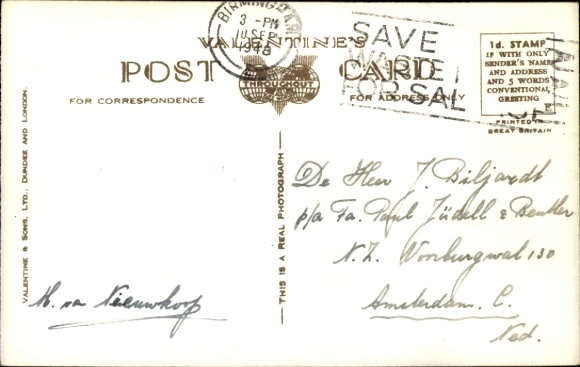 BIRMINGHAM
3 - PM
10 SEP
1948
SAVE
WASTE
FOR SAL
VALENTINE'S
POST CARD
THROUGHOUT
FOR CORRESPONDENCE
FOR ADDRESS ONLY
1d. STAMP
IF WITH ONLY
SENDER'S NAME
AND ADDRESS
AND 5 WORDS
CONVENTIONAL
GREETING
E
PRINTED IN
GREAT BRITAIN
VALENTINE & SONS, LTD., DUNDEE AND LONDON.
THIS IS A REAL PHOTOGRAPH
De Heer J. Biljardt
p/a Fa. Paul Jüdell & Beutler
N.Z. Voorburgwal 130
Amsterdam. C.
Ned.
M. van Nieuwkoop